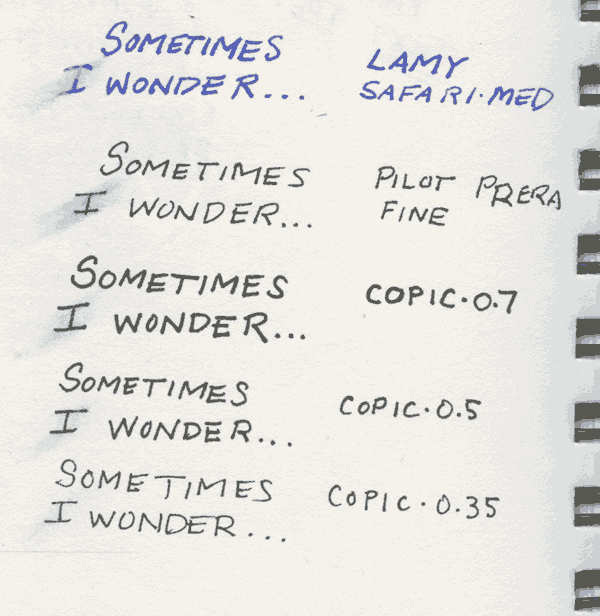 SOMETIMES
I WONDER...
LAMY
SAFARI·MED
SOMETIMES
I WONDER...
PILOT PRERA
FINE
SOMETIMES
I WONDER...
COPIC·0.7
SOMETIMES
I WONDER...
COPIC·0.5
SOMETIMES
I WONDER...
COPIC·0.35